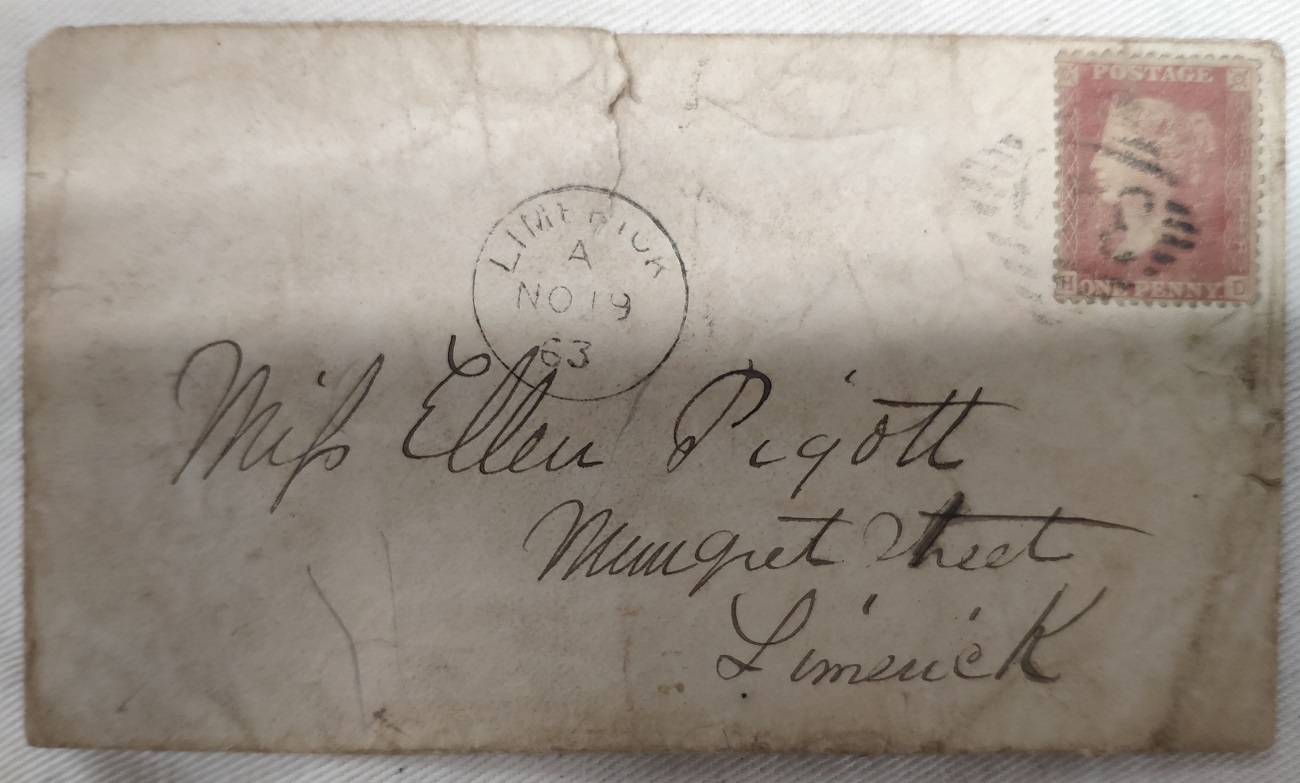 POSTAGE
ONE PENNY
H D
LIMERICK
A
NO 19
63
Miss Ellen Pigott
Mungret Street
Limerick